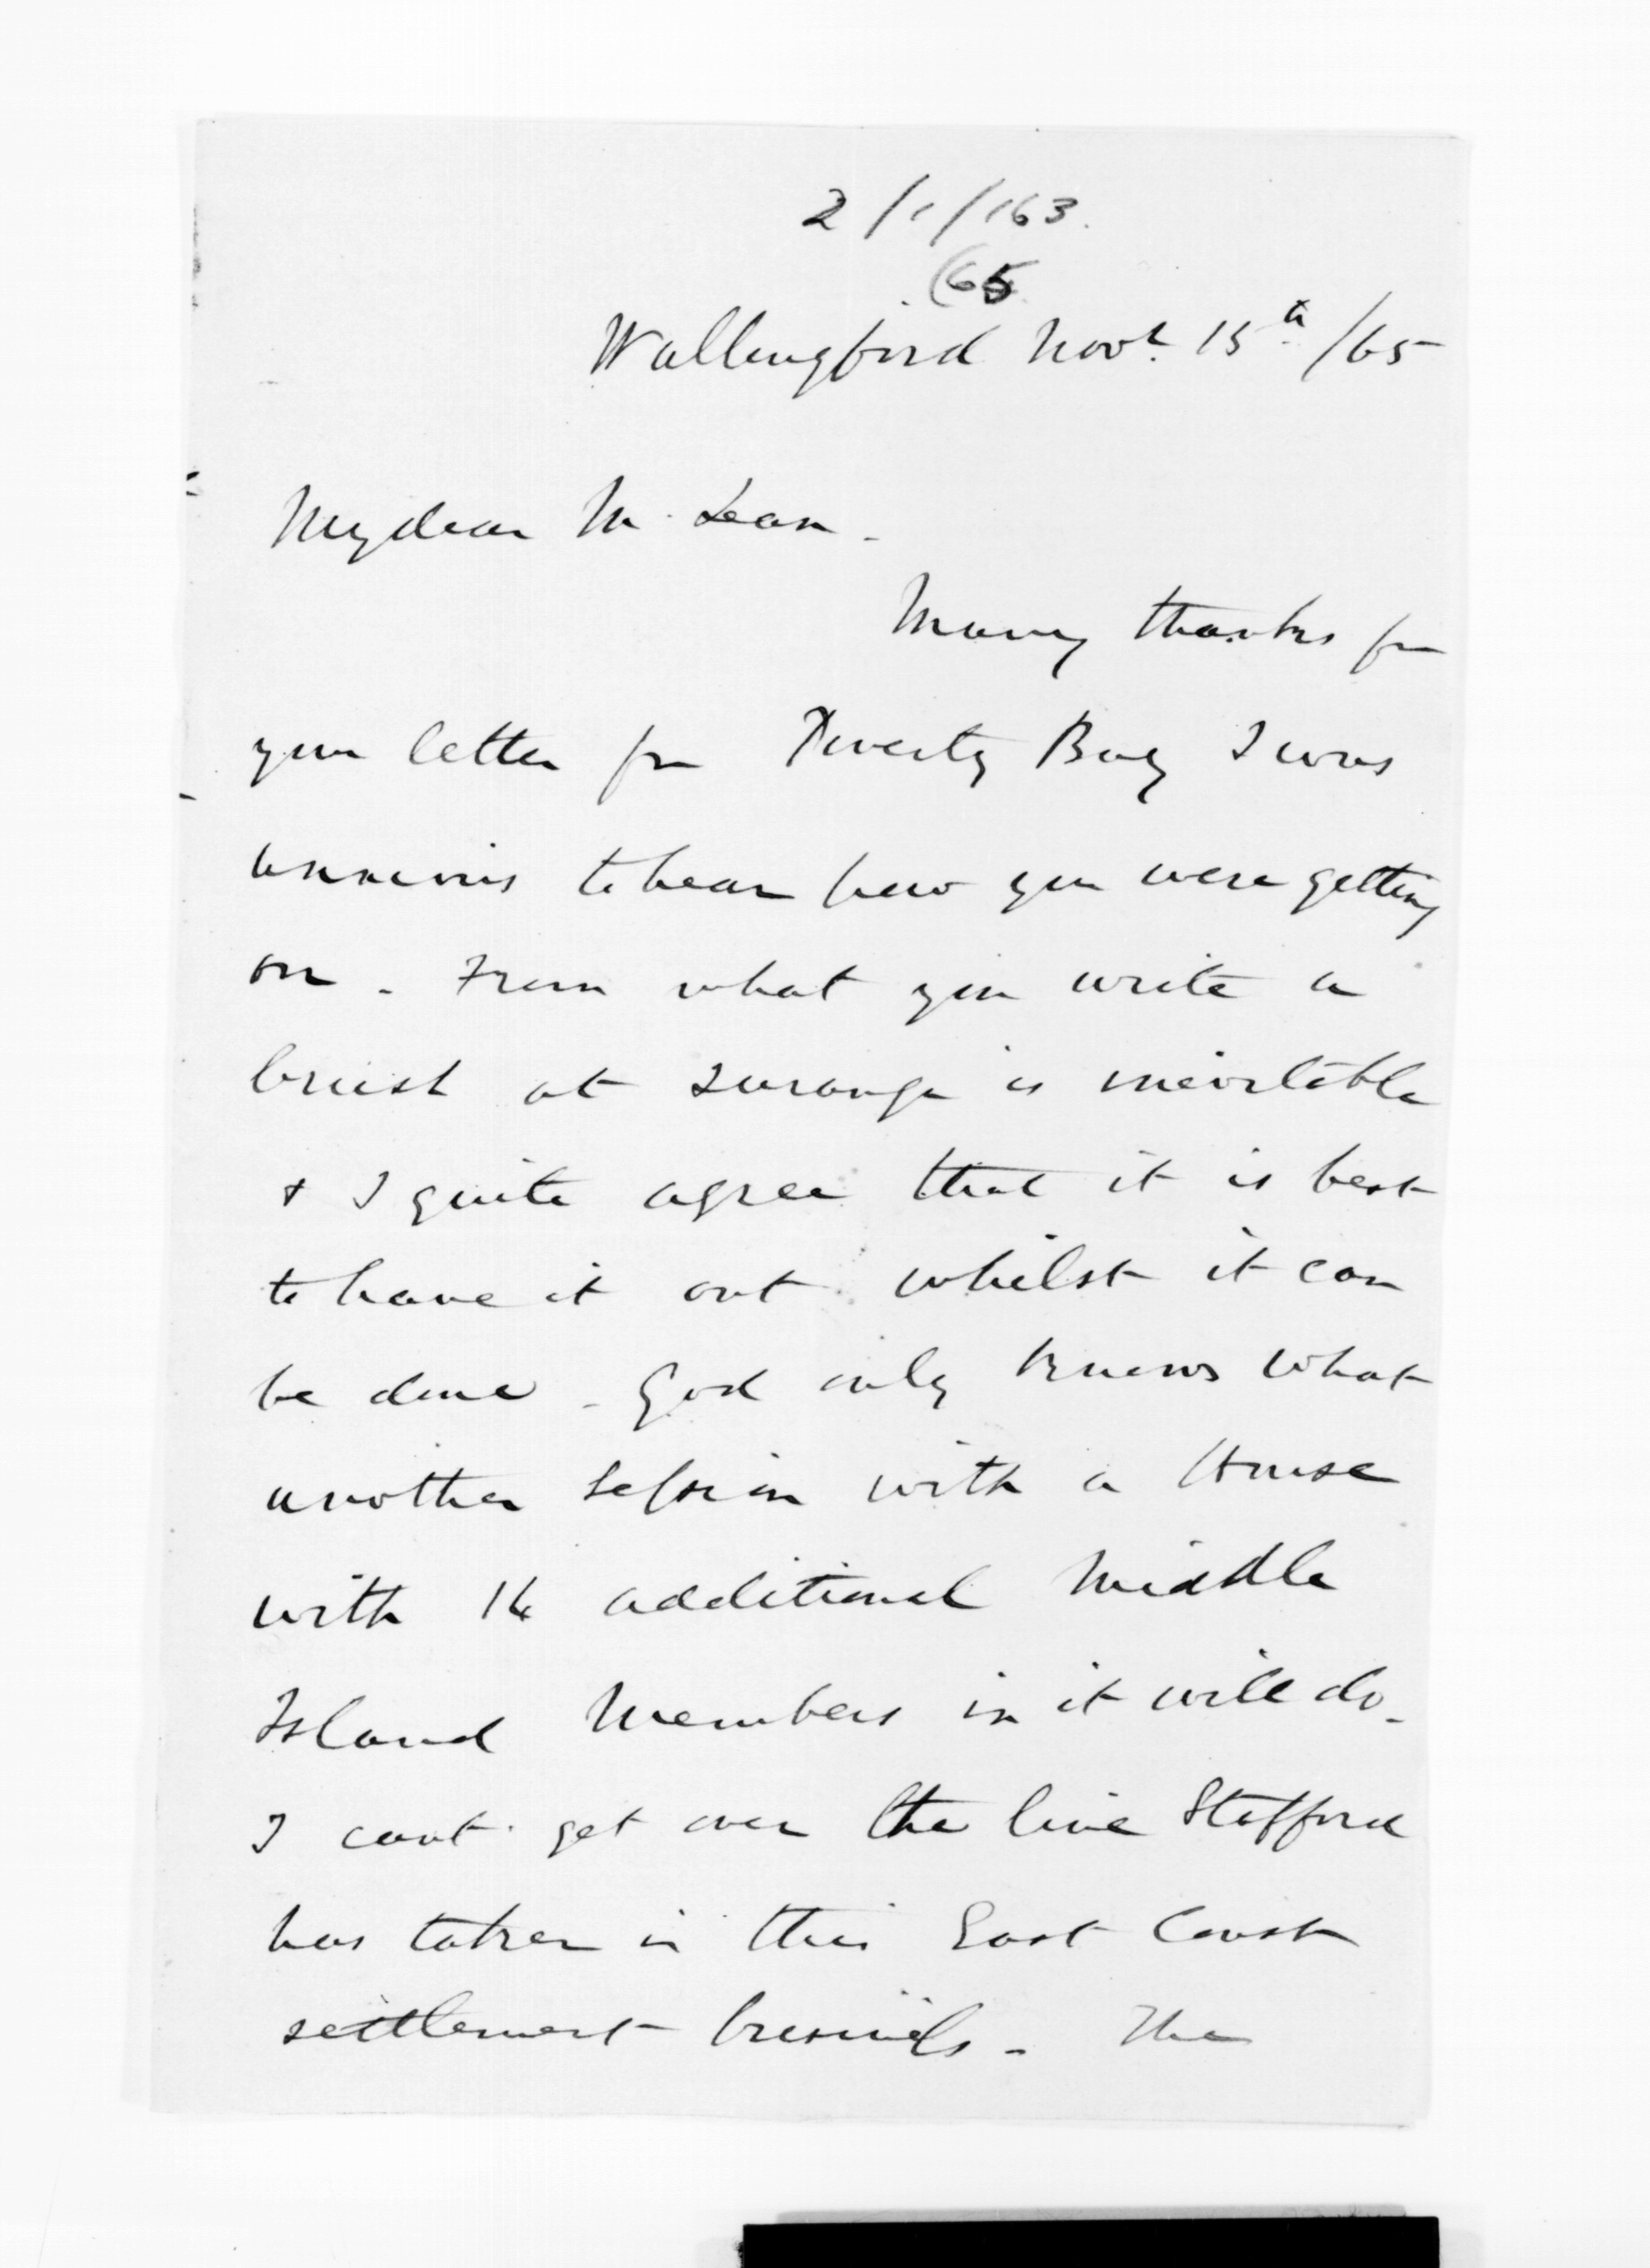 2/1/163.
(65
Wallingford Novr. 15th /65
My dear McLean -
Many thanks for
your letter fm Poverty Bay I was
anxious to hear how you were getting
on - From what you write a
brush at Turanga is inevitable
+ I quite agree that it is best
to have it out whilst it can
be done - God only knows what
another Session with a House
with 14 additional Middle
Island Members in it will do -
I cant get over the line Stafford
has taken in this East Coast
settlement business - The